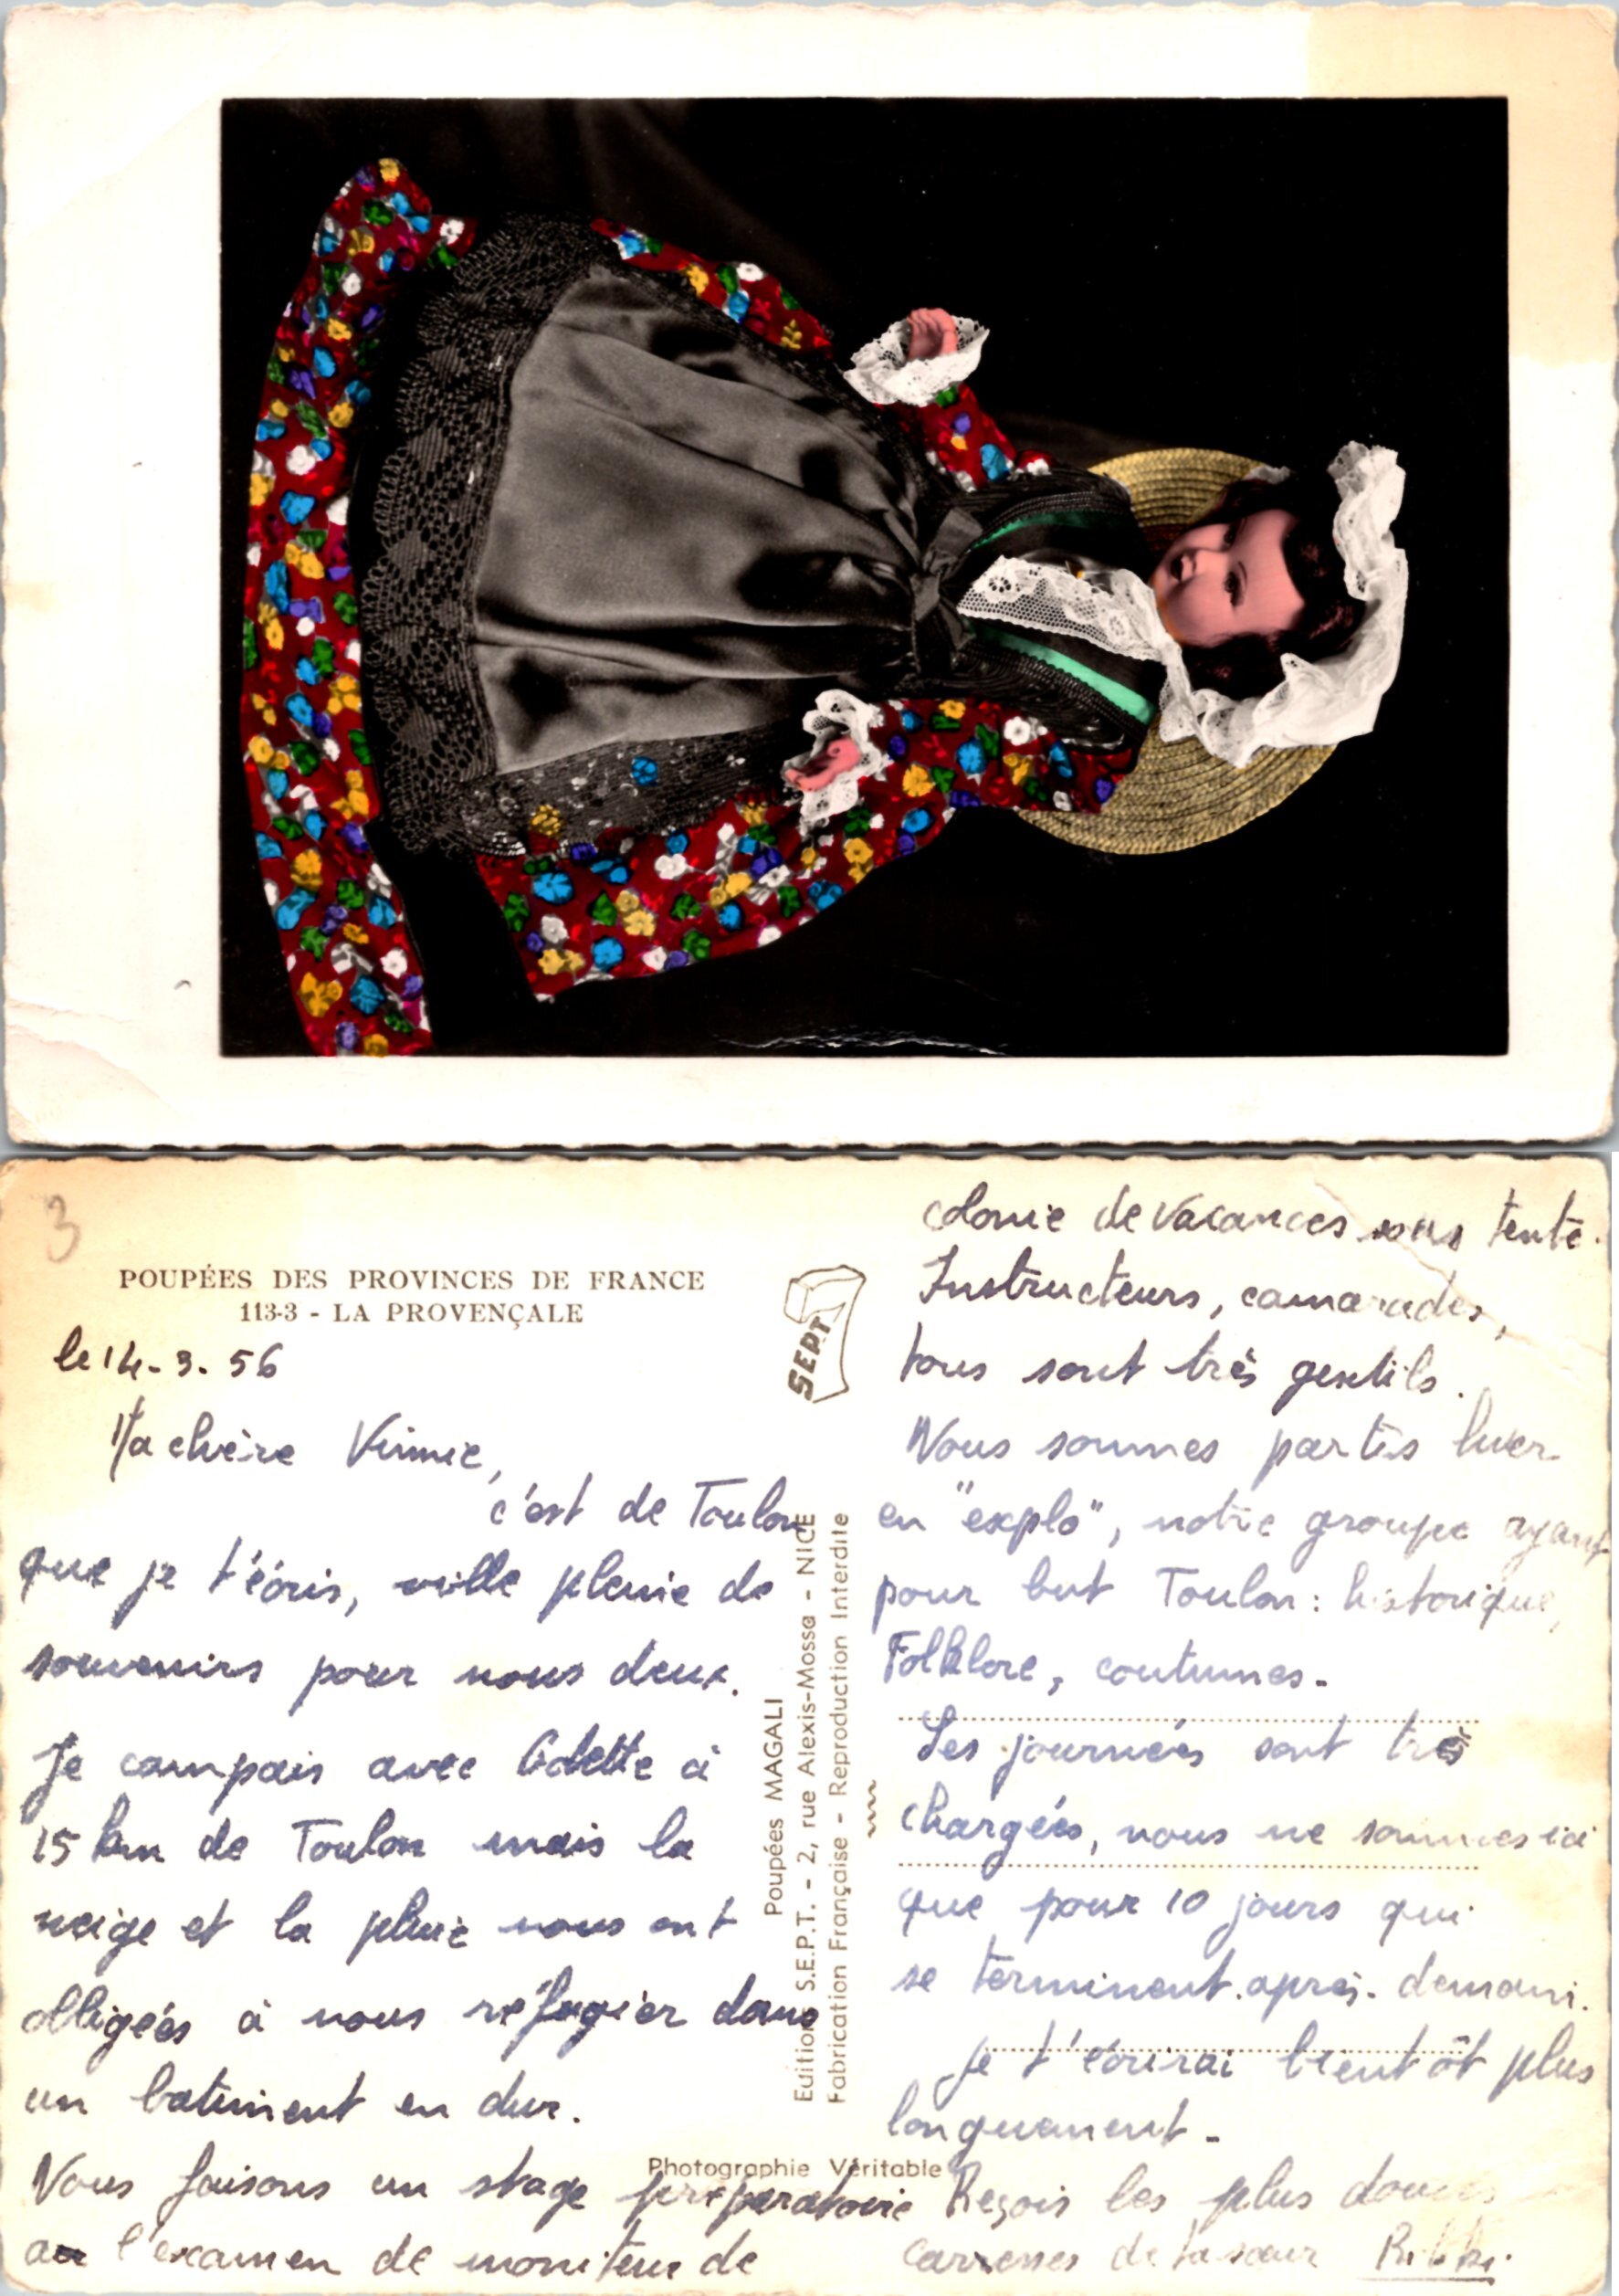 3
POUPÉES DES PROVINCES DE FRANCE
113-3 - LA PROVENÇALE
SEPT
le 14-3-56
Ma chère Vinnie,
c'est de Toulon
que je t'écris, ville pleine de
souvenirs pour nous deux.
Je campais avec Odette à
15 km de Toulon mais la
neige et la pluie nous ont
obligées à nous réfugier dans
un batiment en dur.
Nous faisons un stage préparatoire
au l'examen de moniteur de
Poupées MAGALI
Edition S.E.P.T. - 2, rue Alexis-Mossa - NICE
Fabrication Française - Reproduction Interdite
Photographie Véritable
colonie de vacances sous tente.
Instructeurs, camarades,
tous sont très gentils.
Nous sommes partis hier
en "explo", notre groupe ayant
pour but Toulon : historique,
Folklore, coutumes.
Les journées sont très
chargées, nous ne sommes ici
que pour 10 jours qui
se terminent après-demain.
Je t'écrirai bientôt plus
longuement -
Reçois les plus douces
caresses de ta sœur